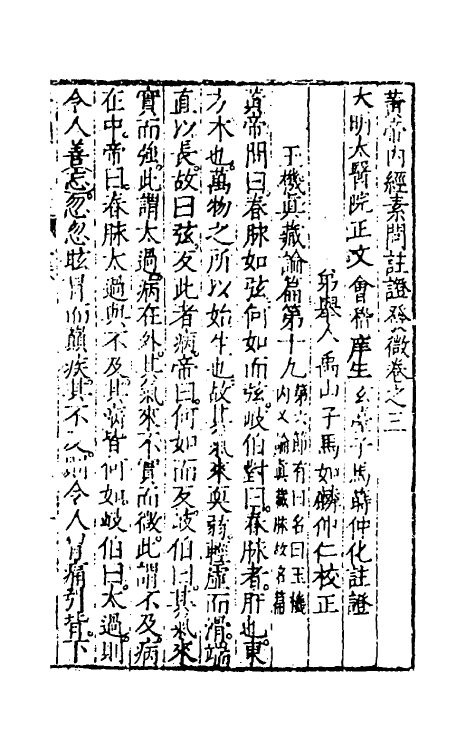 黃帝內經素問註證發微卷之三
大明太醫院正文會稽庠生玄臺子馬蒔仲化註證
弟舉人禹山子馬如麟仲仁校正
玉機真藏論篇第十九第六節有曰名曰玉機內又論真藏脉故名篇
黃帝問曰春脉如弦何如而弦岐伯對曰春脉者肝也東
方木也萬物之所以始生也故其氣來耎弱輕虛而滑端
直以長故曰弦反此者病帝曰何如而反岐伯曰其氣來
實而強此謂太過病在外其氣來不實而微此謂不及病
在中帝曰春脉太過與不及其病皆何如岐伯曰太過則
令人善忘忽忽眩冒而巔疾其不及則令人胷痛引背下